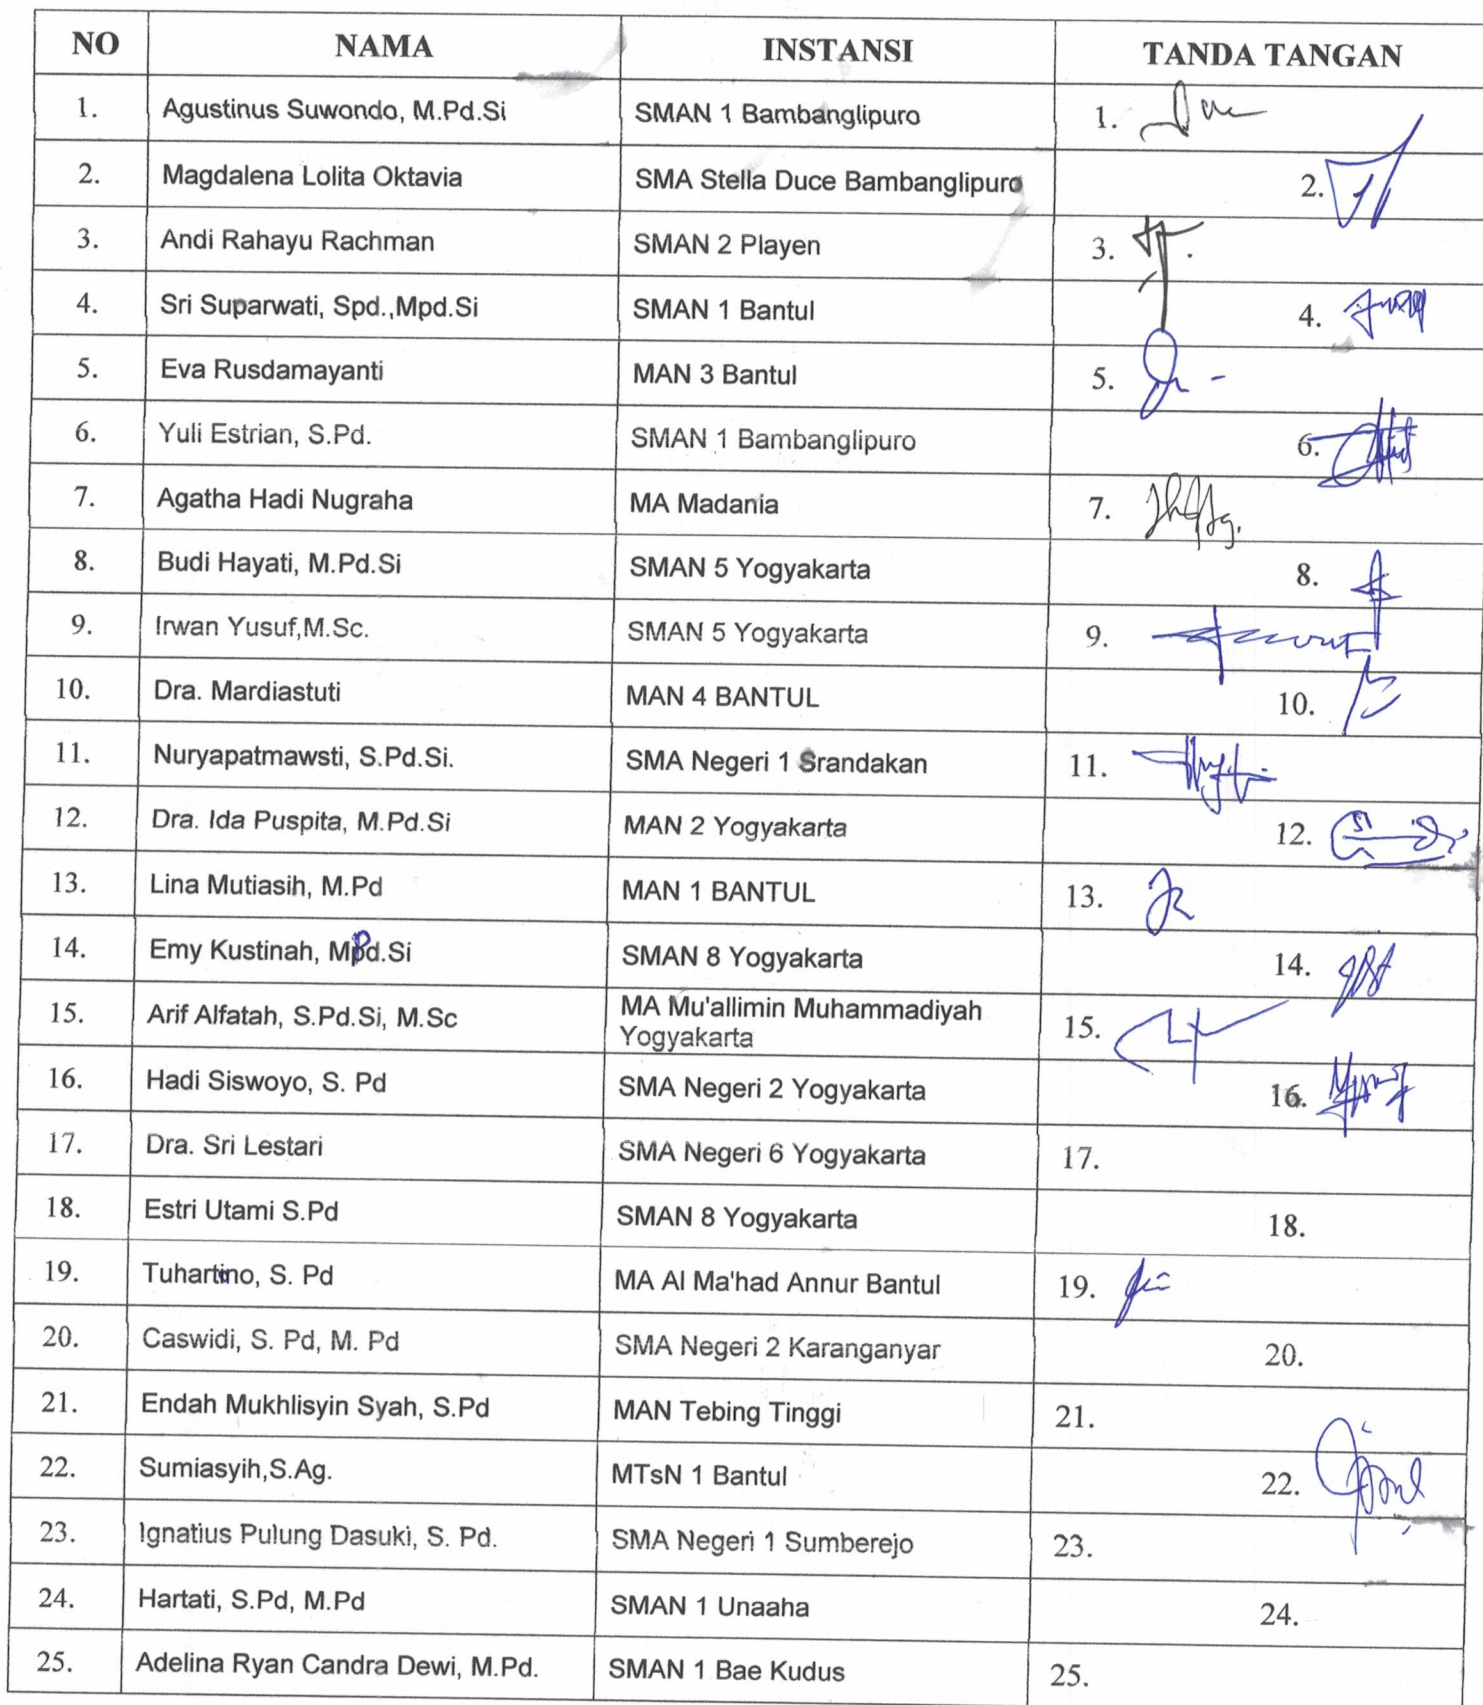 NO NAMA INSTANSI TANDA TANGAN
1. Agustinus Suwondo, M.Pd.Si SMAN 1 Bambanglipuro 1.
2. Magdalena Lolita Oktavia SMA Stella Duce Bambanglipuro 2.
3. Andi Rahayu Rachman SMAN 2 Playen 3.
4. Sri Suparwati, Spd.,Mpd.Si SMAN 1 Bantul 4.
5. Eva Rusdamayanti MAN 3 Bantul 5.
6. Yuli Estrian, S.Pd. SMAN 1 Bambanglipuro 6.
7. Agatha Hadi Nugraha MA Madania 7.
8. Budi Hayati, M.Pd.Si SMAN 5 Yogyakarta 8.
9. Irwan Yusuf,M.Sc. SMAN 5 Yogyakarta 9.
10. Dra. Mardiastuti MAN 4 BANTUL 10.
11. Nuryapatmawsti, S.Pd.Si. SMA Negeri 1 Srandakan 11.
12. Dra. Ida Puspita, M.Pd.Si MAN 2 Yogyakarta 12.
13. Lina Mutiasih, M.Pd MAN 1 BANTUL 13.
14. Emy Kustinah, MPd.Si SMAN 8 Yogyakarta 14.
15. Arif Alfatah, S.Pd.Si, M.Sc MA Mu'allimin Muhammadiyah
Yogyakarta 15.
16. Hadi Siswoyo, S. Pd SMA Negeri 2 Yogyakarta 16.
17. Dra. Sri Lestari SMA Negeri 6 Yogyakarta 17.
18. Estri Utami S.Pd SMAN 8 Yogyakarta 18.
19. Tuhartino, S. Pd MA Al Ma'had Annur Bantul 19.
20. Caswidi, S. Pd, M. Pd SMA Negeri 2 Karanganyar 20.
21. Endah Mukhlisyin Syah, S.Pd MAN Tebing Tinggi 21.
22. Sumiasyih,S.Ag. MTsN 1 Bantul 22.
23. Ignatius Pulung Dasuki, S. Pd. SMA Negeri 1 Sumberejo 23.
24. Hartati, S.Pd, M.Pd SMAN 1 Unaaha 24.
25. Adelina Ryan Candra Dewi, M.Pd. SMAN 1 Bae Kudus 25.